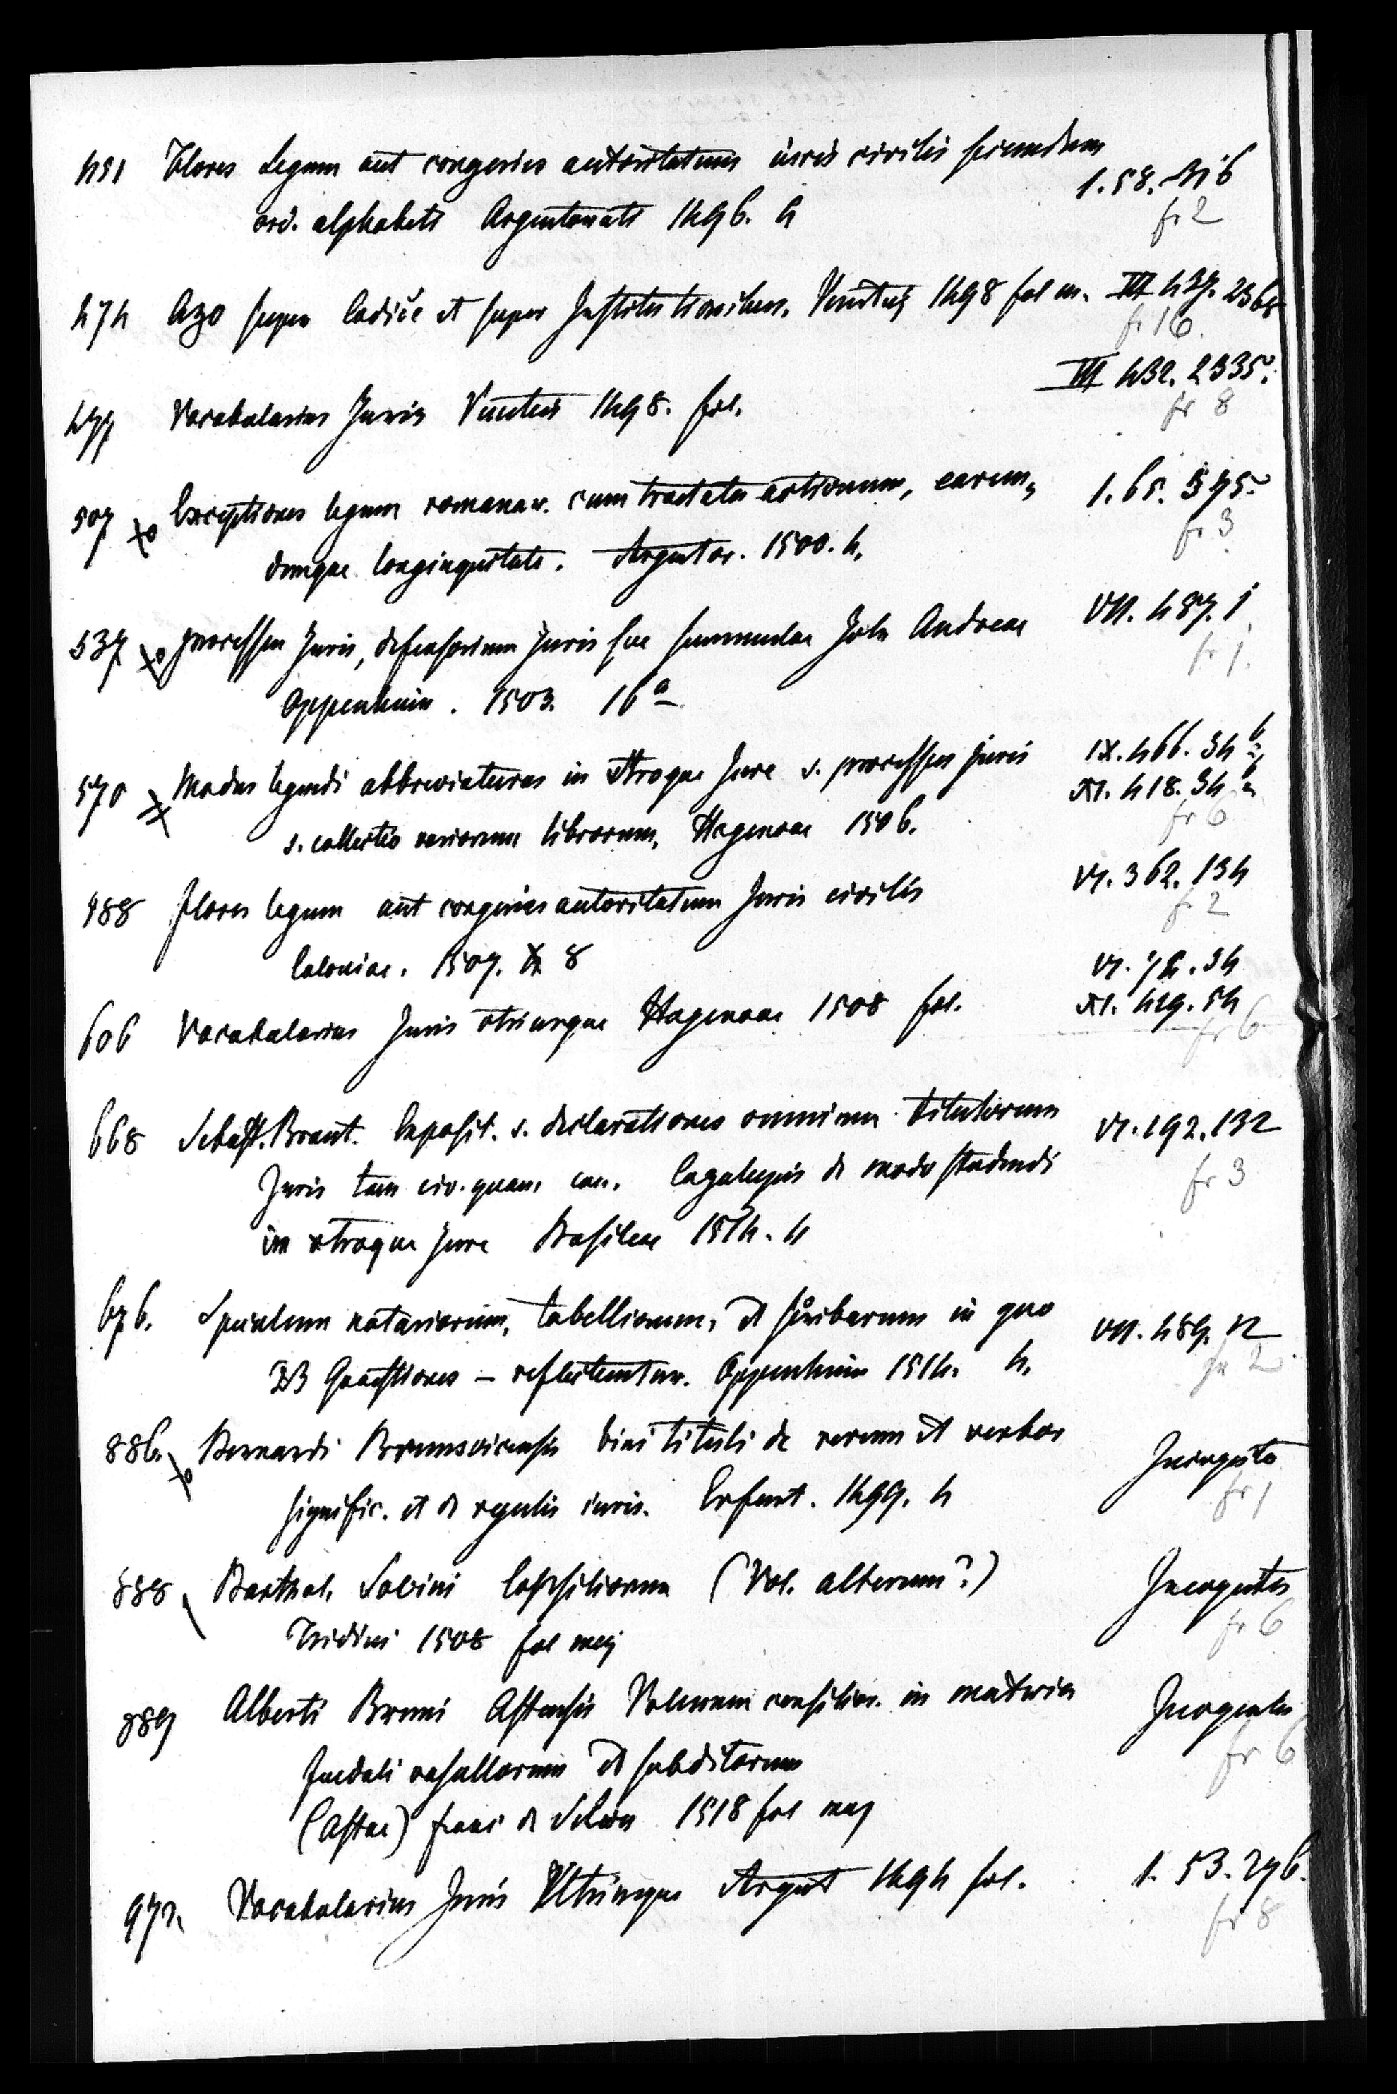 451 Flores Legum aut congeries autoritatum iuris civilis secundum
ord. alphabeti Argentorati 1496. 4 1.58.
fr 2
474 Azo super Codice et super Institutionibus. Venetiis 1498 fol m. III 437. 236
fr 16.
477 Vocabularius Juris Venetiis 1498. fol. III 432. 2335.
fr 8
507 Exceptiones legum romanar. cum tractatu actionum, earum„ 1.65. 395
fr 3
demque longinquitate. Argentor. 1500. 4.
537 processus Juris, defensorium Juris seu summulae Joh Andreae VII. 487. 1
fr 1.
Oppenheim. 1503. 16°
570 Modus legendi abbreviaturas in utroque Jure s. processus juris IX. 466. 34 b
s. collectio variorum librorum, Hagenoae 1506. XI. 418. 34
fr 6
588 flores legum aut congeries autoritatum Juris civilis VI. 362. 134
fr 2
Coloniae. 1507. 8
606 Vocabularius Juris utriusque Hagenoae 1508 fol. VI. 72. 34
XI. 429. 54
fr 6
668 Sebast. Brant. Exposit. s. declarationes omnium titulorum VI. 192. 132
Juris tam civ. quam can. de modo studendi fr 3
in utroque Jure Basileae 1514. 4
676. Speculum notariorum, tabellionum, et scribarum in quo VII. 489. 12
fr 2
Quaestiones – Oppenheim 1514. 4.
886. Bernardi Brunsvicensis bini tituli de rerum et verbor Incognita
signific. et de regulis iuris. Erfurt. 1499. 4 fr 1
888 Barthol. Socini Consiliorum (Vol. alterum?) Incognitus
Tridini 1508 fol maj fr 6
889 Alberti Bruni Astensis Volumen consilior. in materia
feudali vasallorum et subditorum fr 6
(Astae) franc de Silva 1518 fol maj
972. Vocabularius Juris Utriusque Argent 1494 fol. 1. 53. 296.
fr 8